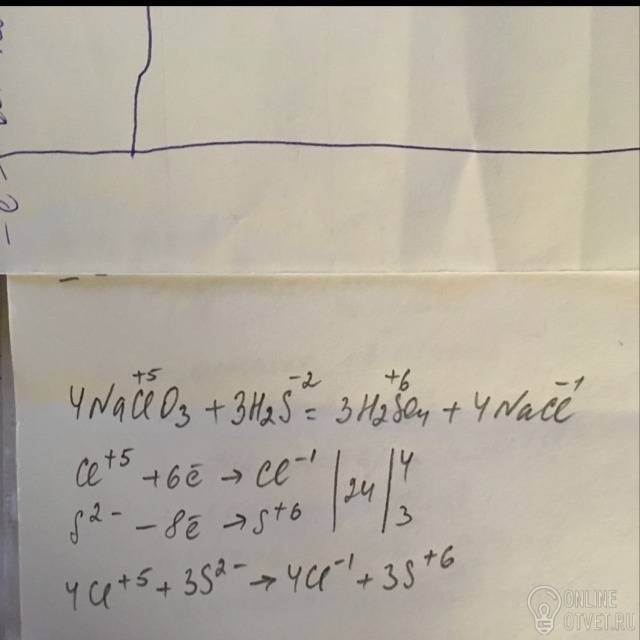 4NaCl⁺⁵O₃ + 3H₂S⁻² = 3H₂S⁺⁶O₄ + 4NaCl⁻¹
Cl⁺⁵ + 6ē → Cl⁻¹ | 24 | 4
S²⁻ − 8ē → S⁺⁶ | 3
4Cl⁺⁵ + 3S²⁻ → 4Cl⁻¹ + 3S⁺⁶
ONLINE
OTVET.RU